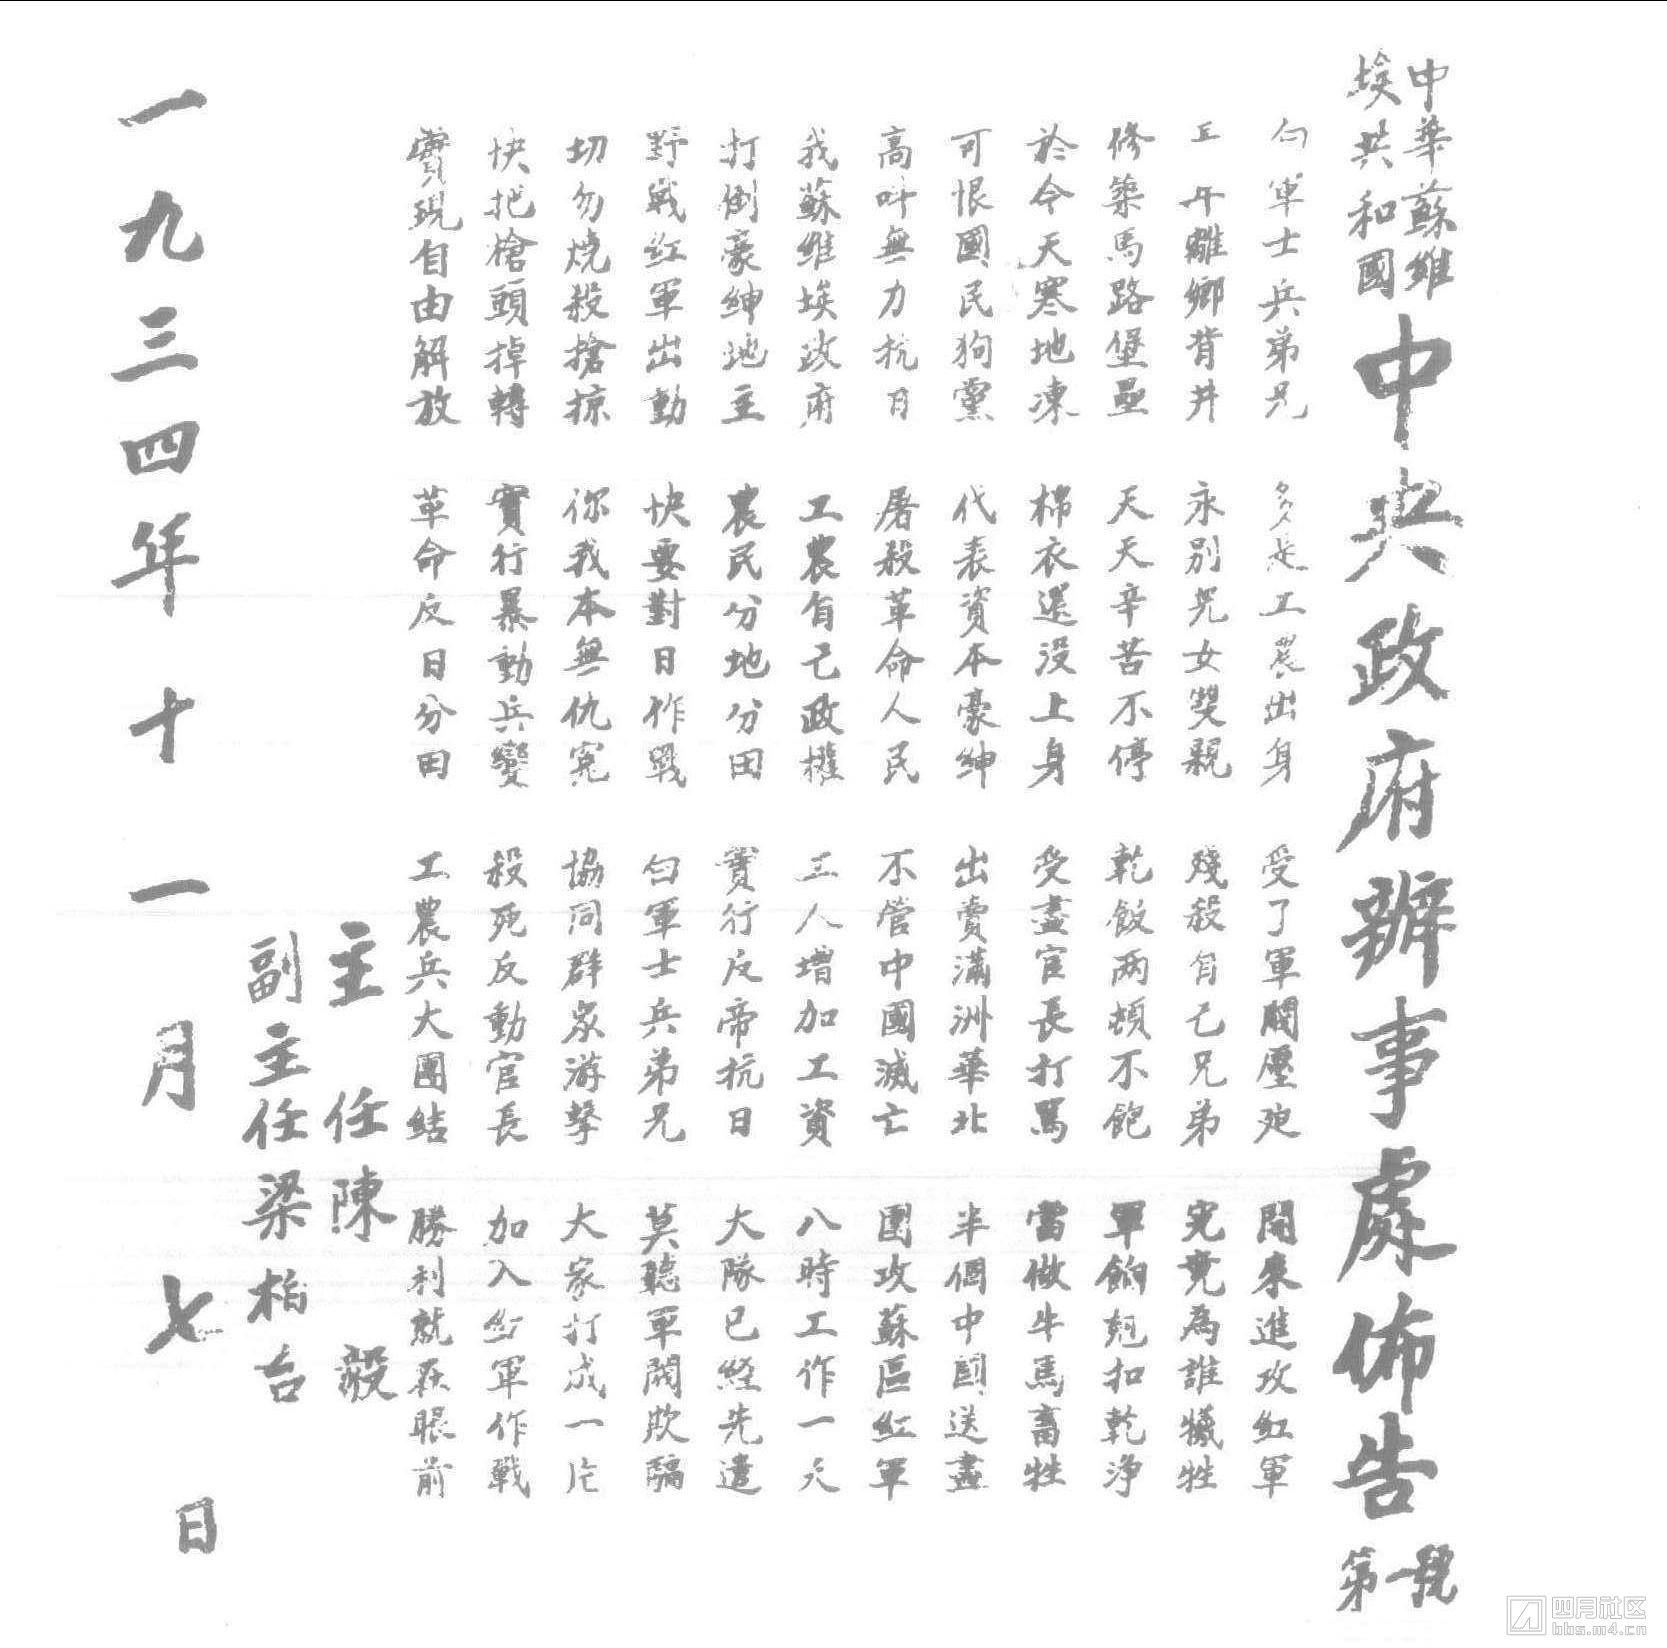 中華蘇維
埃共和國
中央政府辦事處佈告
第一號
白軍士兵弟兄 多是工農出身 受了軍閥壓迫 開來進攻紅軍
年離鄉背井 永別兒女雙親 殘殺自己兄弟 究竟為誰犧牲
修築馬路堡壘 天天辛苦不停 乾飯兩頓不飽 軍餉尅扣乾淨
於今天寒地凍 棉衣還没上身 受盡官長打罵 當做牛馬畜牲
可恨國民狗黨 代表資本豪紳 出賣滿洲華北 半個中國送盡
高叫無力抗日 屠殺革命人民 不管中國滅亡 圍攻蘇區紅軍
我蘇維埃政府 工農自己政權 工人增加工資 八時工作一天
打倒豪紳地主 農民分地分田 實行反帝抗日 大隊已經先遣
野戰紅軍出動 快要對日作戰 白軍士兵弟兄 莫聽軍閥欺騙
切勿燒殺搶掠 你我本無仇冤 協同群衆游擊 大家打成一片
快把槍頭掉轉 實行暴動兵變 殺死反動官長 加入紅軍作戰
實現自由解放 革命反日分田 工農兵大團結 勝利就在眼前
主任陳毅
副主任梁柏台
一九三四年十一月七日
四月社区
bbs.m4.cn